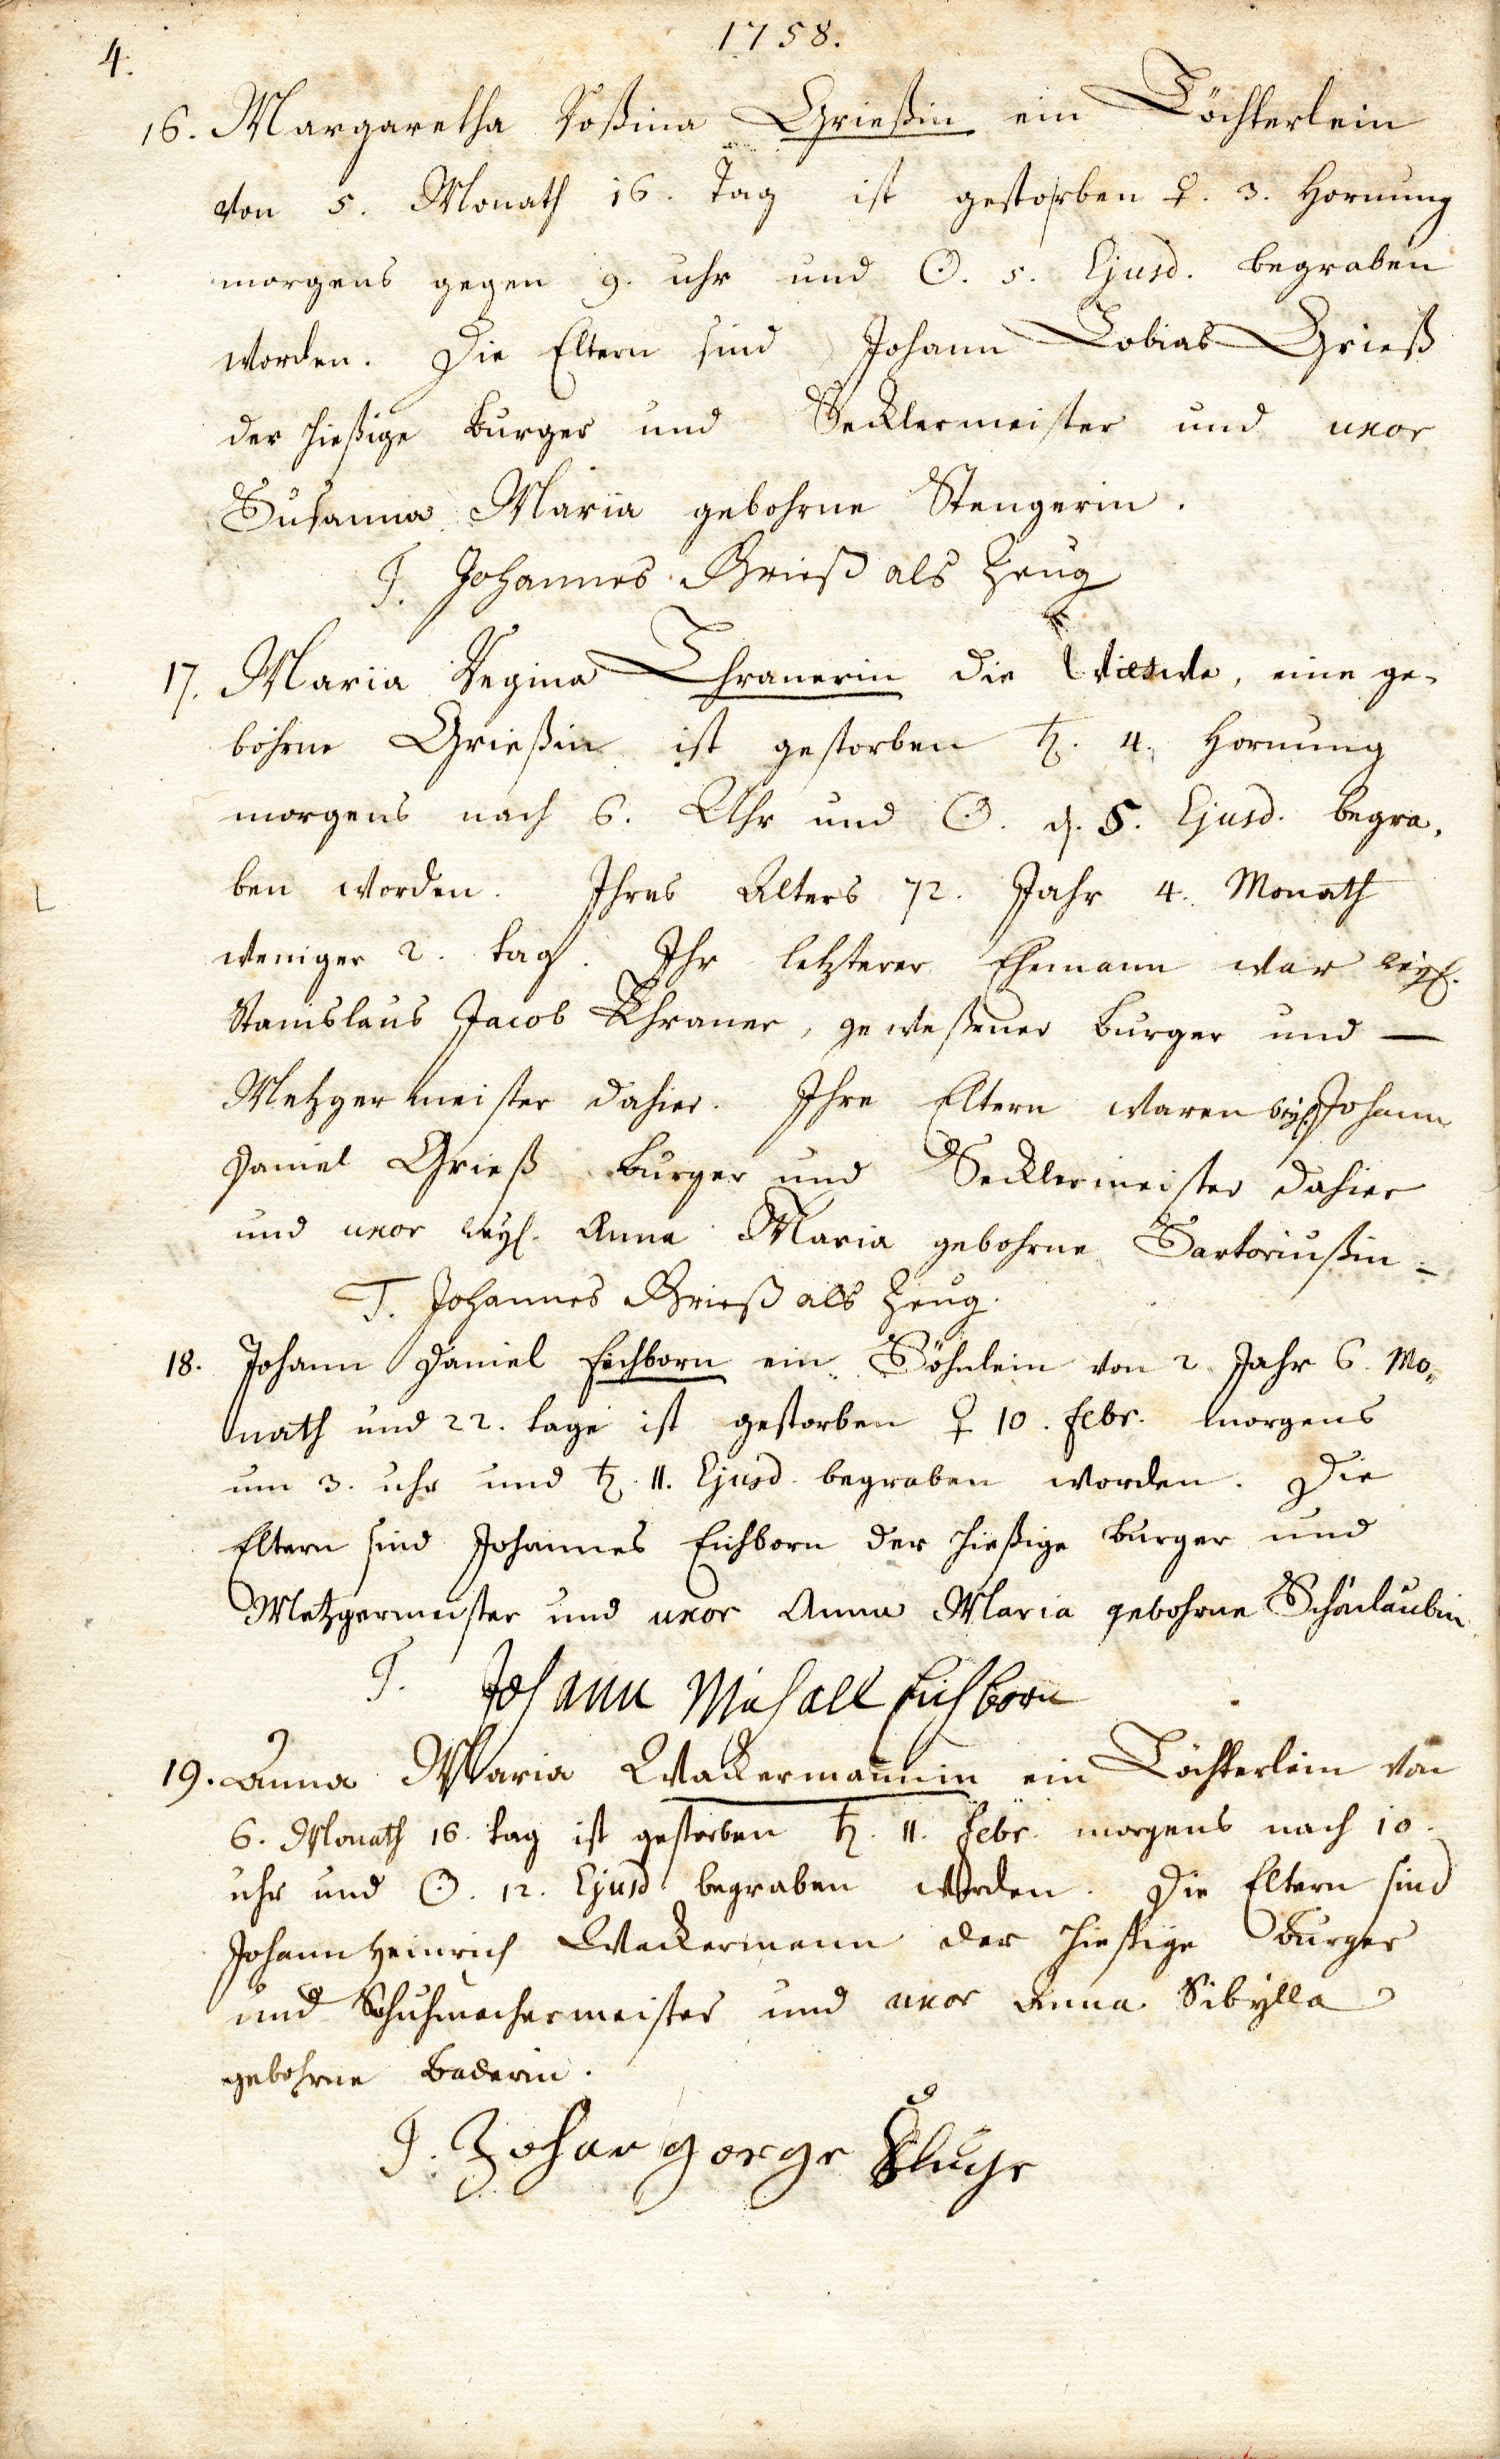 1758.
4.
16. Margaretha Roßina Grießin ein Töchterlein
von 5. Monath 16. Tag ist gestorben ♀. 3. Hornung
morgens gegen 9. uhr und ☉. 5. Ejusd. begraben
worden. Die Eltern sind Johann Tobias Grieß
der hießige Burger und Secklermeister und uxor
Susanna Maria gebohrne Stengerin.
T. Johannes Grieß als Zeug
17. Maria Regina Thranerin die Wittwe, eine ge-
bohrne Grießin ist gestorben ♄. 4. Hornung
morgens nach 6. Uhr und ☉. d. 5. Ejusd. begra-
ben worden. Ihres Alters 72. Jahr 4. Monath
weniger 2. tag. Ihr letzterer Ehemann war weyl.
Stanislaus Jacob Thraner, geweßener Burger und —
Metzgermeister dahier. Ihre Eltern waren weyl. Johann
Daniel Grieß Burger und Secklermeister dahier
und uxor weyl. Anna Maria gebohrne Sartoriußin -
T. Johannes Grieß als Zeug.
18. Johann Daniel Eichborn ein Söhnlein von 2 Jahr 6. Mo„
nath und 22. tage ist gestorben ♀ 10. Febr. morgens
um 3. uhr und ♄. 11. Ejusd. begraben worden. Die
Eltern sind Johannes Eichborn der hießige Burger und
Metzgermeister und uxor Anna Maria gebohrne Schönlaubin
T. Johann Michall Eichborn
19. Anna Maria Wackermannin ein Töchterlein von
6. Monath 16. tag ist gestorben ♄. 11. Febr. morgens nach 10.
uhr und ☉. 12. Ejusd. begraben worden. Die Eltern sind
Johann Heinrich Wackermann der hießige Burger
und Schuhmachermeister und uxor Anna Sibÿlla
gebohrne Baderin.
T. Johan gorge